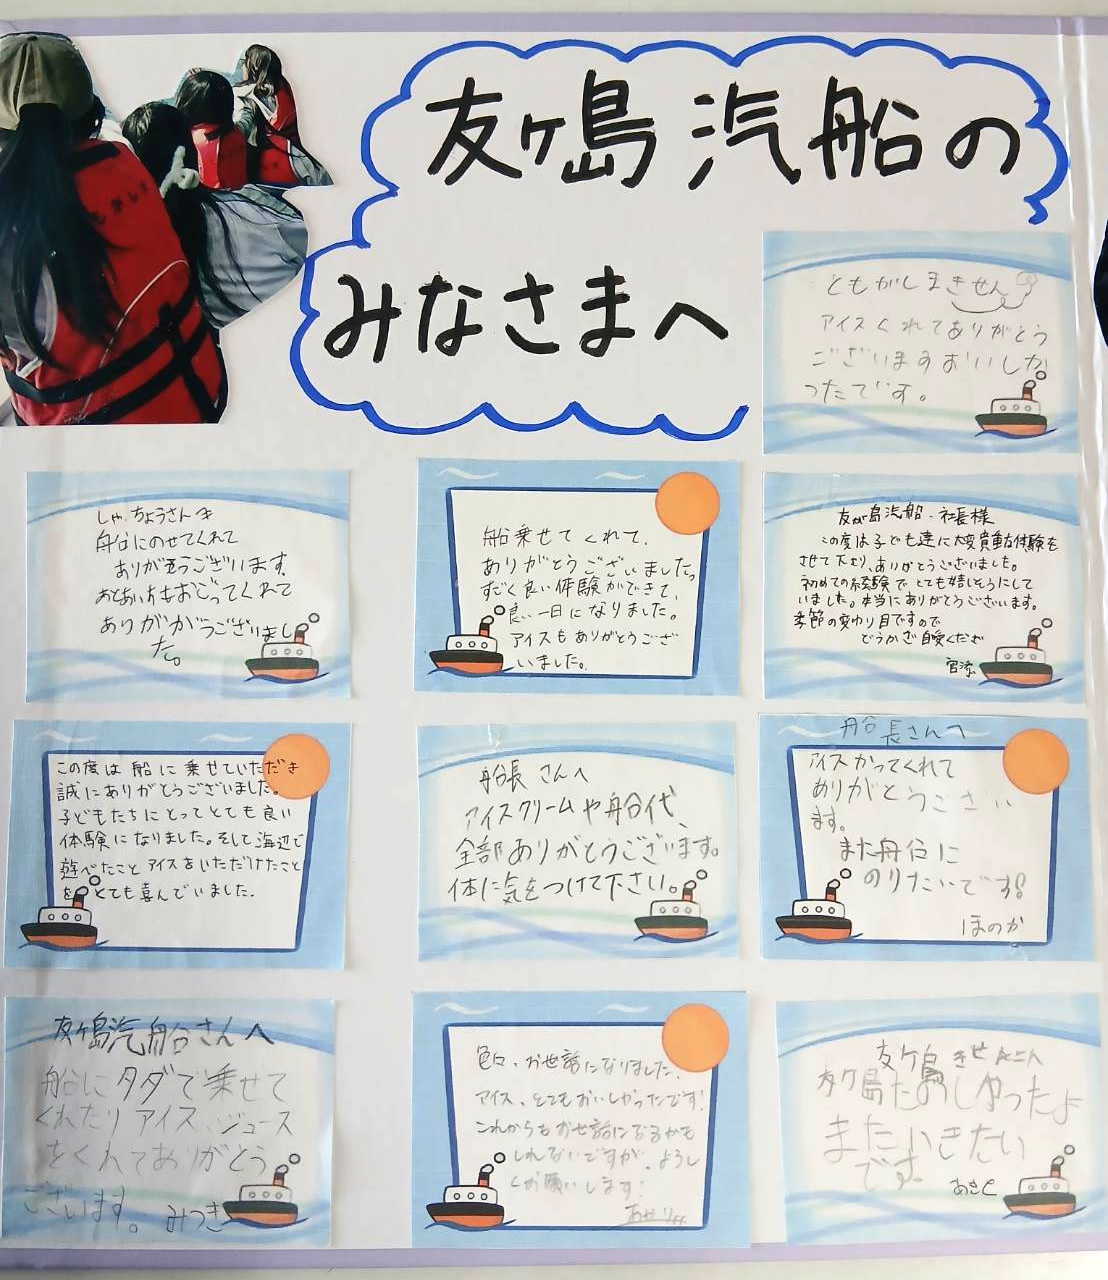 友ヶ島汽船の
みなさまへ
ともがしまきせん
アイスくれてありがとう
ございますおいしか
ったです。
しゃちょうさんき
船にのせてくれて
ありがとうございます。
ありががうございまし
た。
船乗せてくれて、
ありがとうございました。
すごく良い体験ができて、
良い一日になりました。
アイスもありがとうござ
いました。
友が島汽船・社長様
この度は子ども達に大変貴重な体験を
させて下さり、ありがとうございました。
初めての経験でとても嬉しそうにして
いました。本当にありがとうございます。
季節の変わり目ですので
どうかご自愛くださ
この度は船に乗せていただき
誠にありがとうございました。
子どもたちにとってとても良い
体験になりました。そして海辺で
遊べたことアイスをいただけたこと
をとても喜んでいました。
船長さんへ
アイスクリームや船代、
全部ありがとうございます。
体に気をつけて下さい。
船長さんへ
アイスかってくれて
ありがとうござい
ます。
また船に
のりたいです!
ほのか
友ヶ島汽船さんへ
船にタダで乗せて
くれたりアイス、ジュース
をくれてありがとう
ございます。みつき
色々、お世話になりました、
アイス、とてもおいしかったです!
これからもお世話になるかも
しれないですが、よろし
くお願いします!
友ヶ島きせんへ
友ヶ島たのしかったよ
またいきたい
です。
あさと